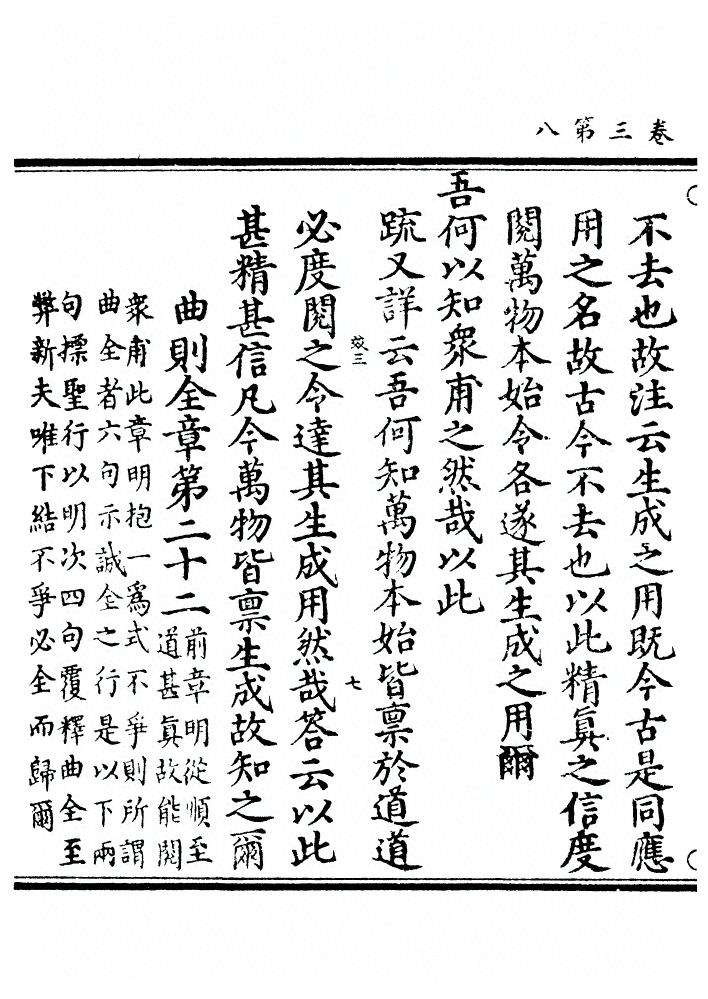 卷三第八
不去也故注云生成之用既今古是同應
用之名故古今不去也以此精真之信度
閱萬物本始令各遂其生成之用爾
吾何以知衆甫之然哉以此
疏又詳云吾何知萬物本始皆禀於道道
效三 七
必度閱之令達其生成用然哉答云以此
甚精甚信凡今萬物皆禀生成故知之爾
曲則全章第二十二
前章明從順至
道甚真故能閱
衆甫此章明抱一爲式不爭則所謂
曲全者六句示誠全之行是以下兩
句摽聖行以明次四句覆釋曲全至
弊新夫唯下結不爭必全而歸爾